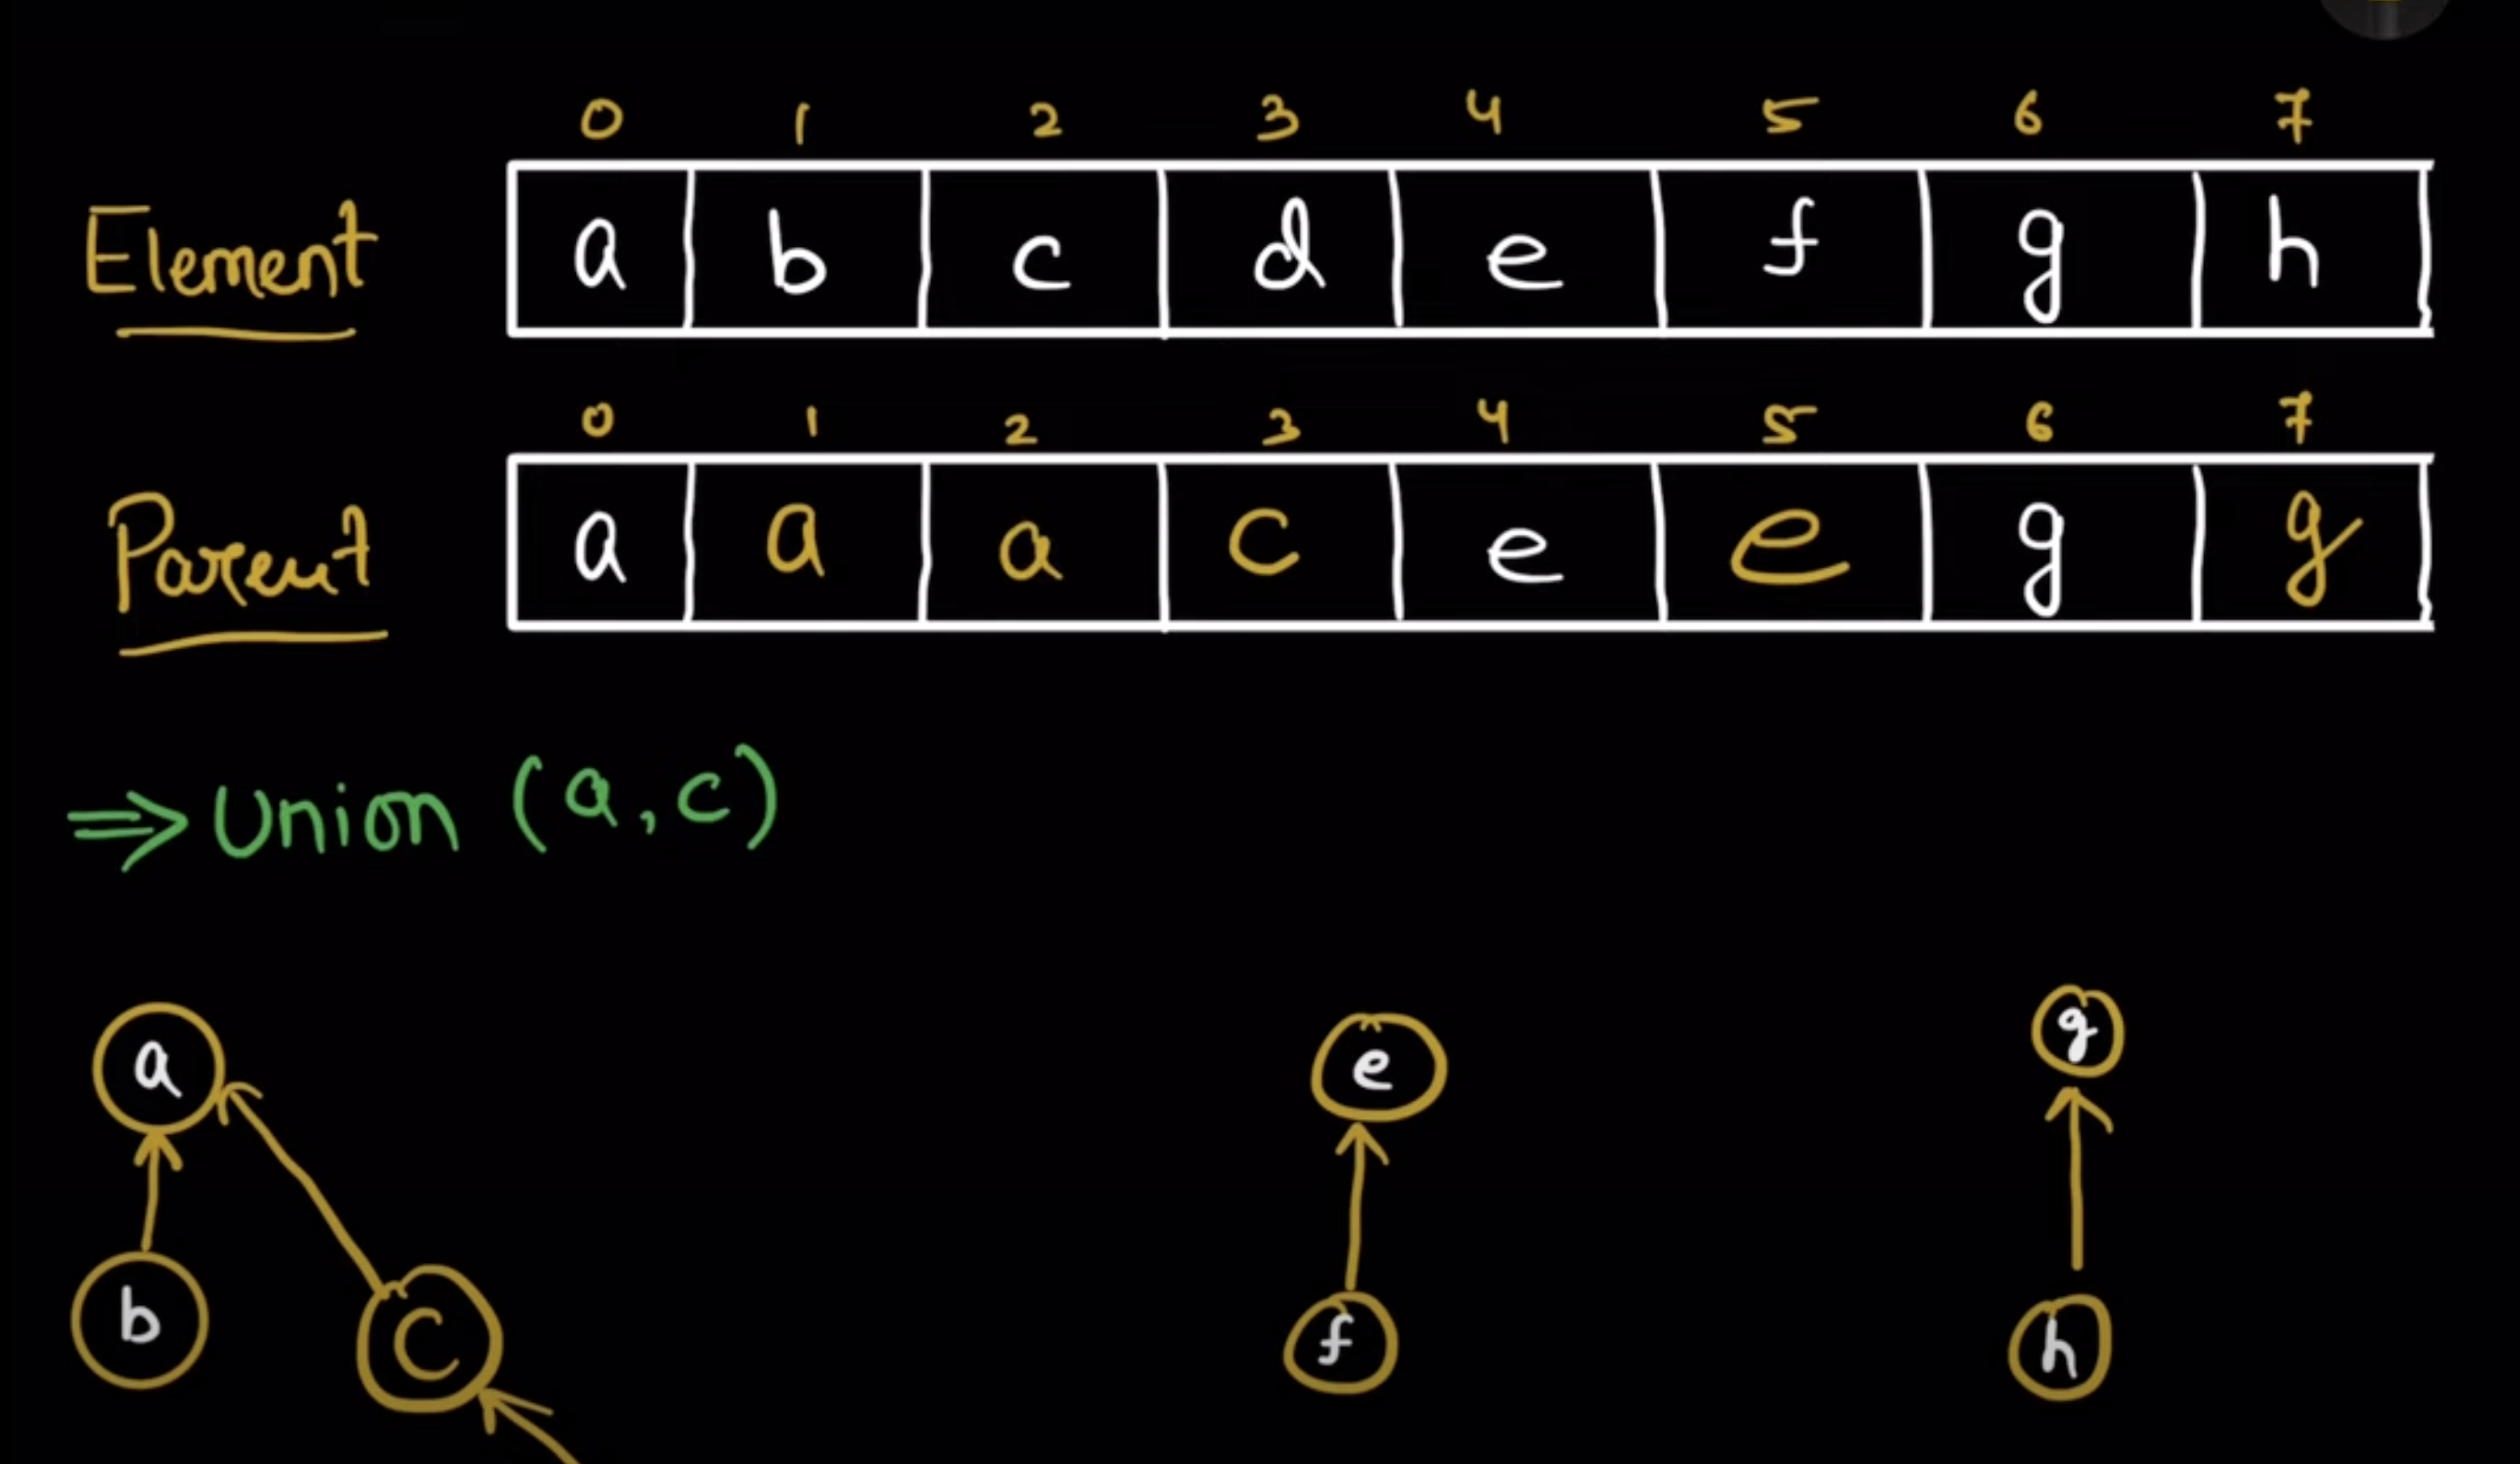 0 1 2 3 4 5 6 7
Element a b c d e f g h
0 1 2 3 4 5 6 7
Parent a a a c e e g g
⇒ Union (a, c)
a e g
b c f h